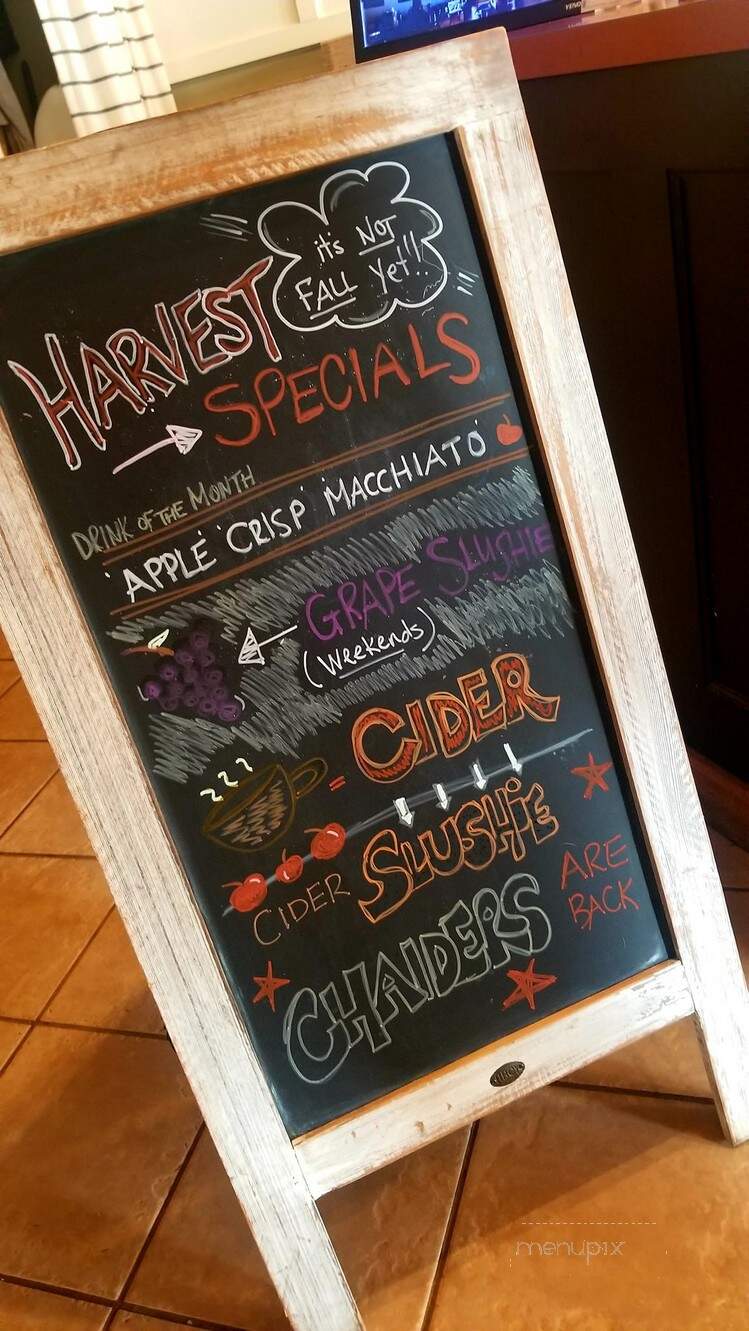 it's NOT
FALL Yet!!
HARVEST
SPECIALS
DRINK OF THE MONTH
'APPLE CRISP' MACCHIATO
GRAPE SLUSHIE
(Weekends)
= CIDER
CIDER SLUSHiE
CHAIDERS
ARE
BACK
menupix